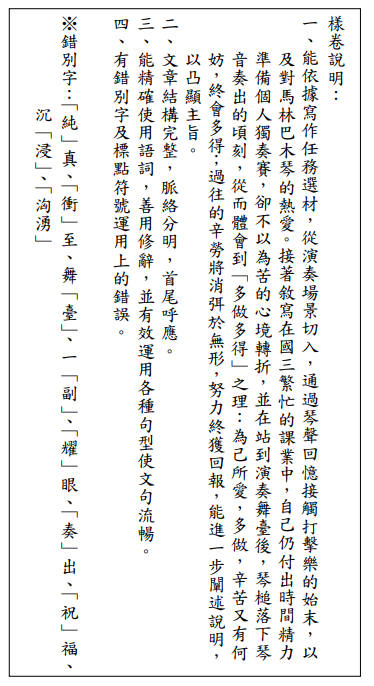 樣卷說明：
一、能依據寫作任務選材，從演奏場景切入，通過琴聲回憶接觸打擊樂的始末，以
及對馬林巴木琴的熱愛。接著敘寫在國三繁忙的課業中，自己仍付出時間精力
準備個人獨奏賽，卻不以為苦的心境轉折，並在站到演奏舞臺後，琴槌落下琴
音奏出的頃刻，從而體會到「多做多得」之理：為己所愛，多做，辛苦又有何
妨，終會多得；過往的辛勞將消弭於無形，努力終獲回報，能進一步闡述說明，
以凸顯主旨。
二、文章結構完整，脈絡分明，首尾呼應。
三、能精確使用語詞，善用修辭，並有效運用各種句型使文句流暢。
四、有錯別字及標點符號運用上的錯誤。
※錯別字：「純」真、「衝」至、舞「臺」、一「副」、「耀」眼、「奏」出、「祝」福、
沉「浸」、「洶湧」